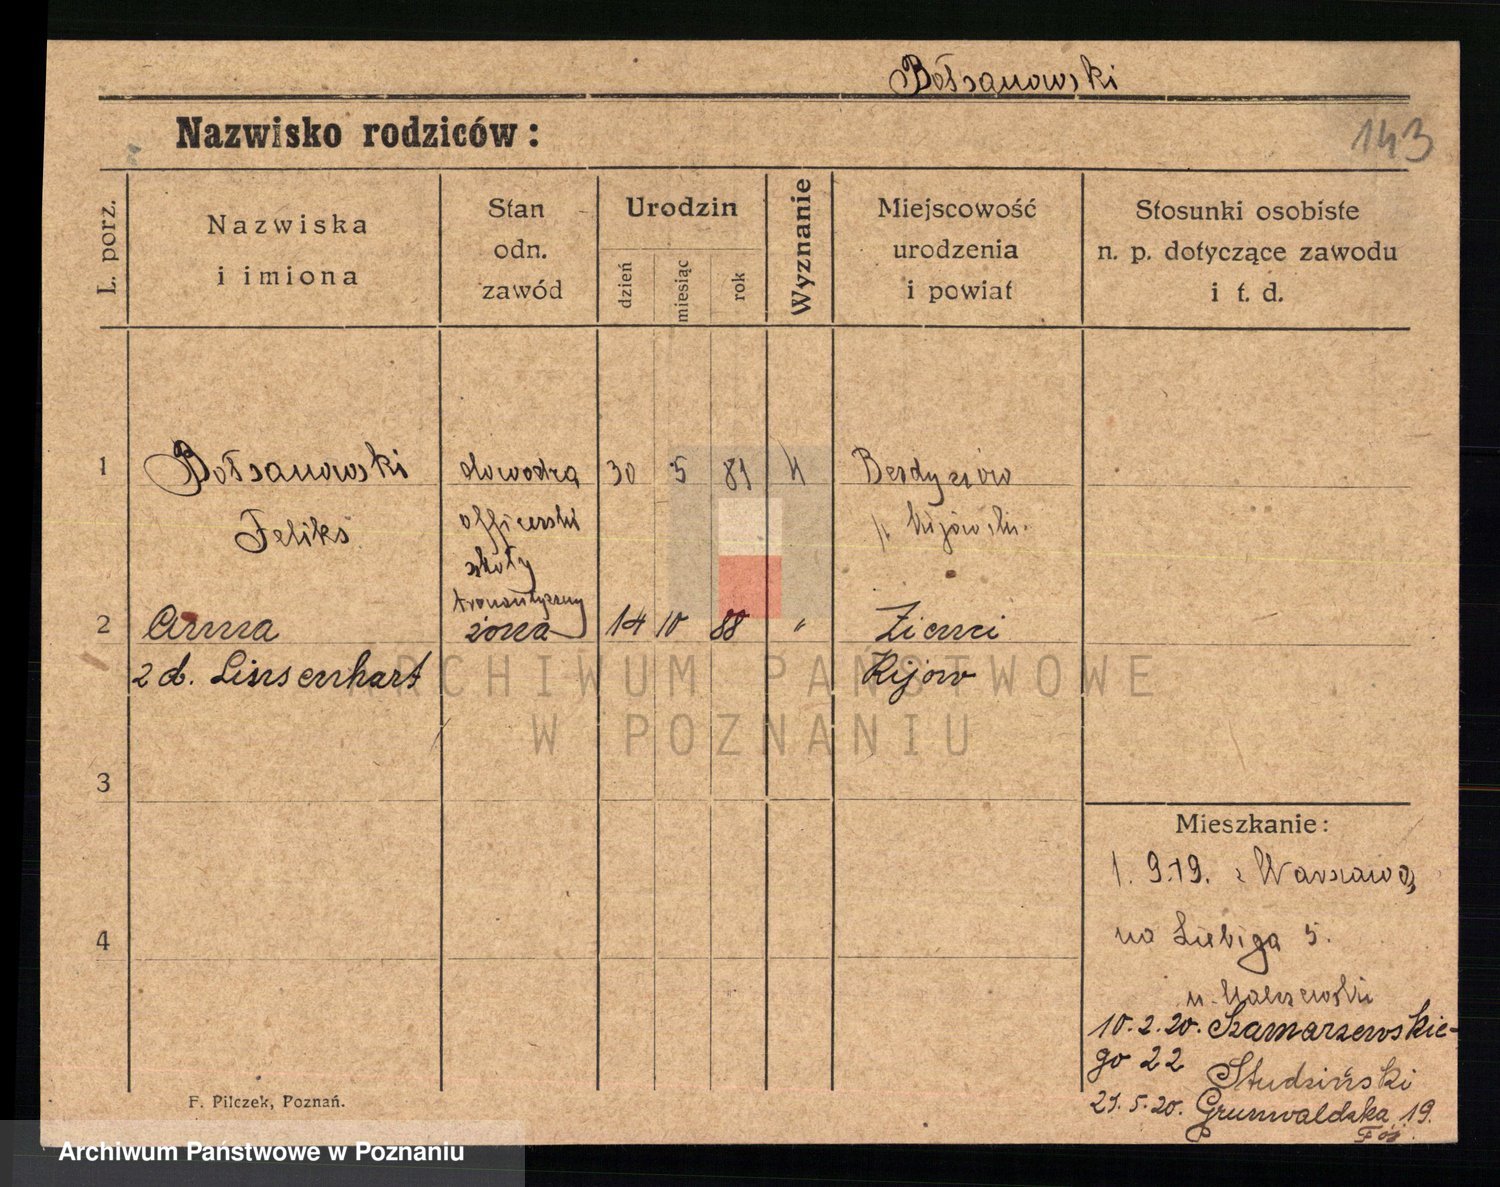 Bołsanowski
Nazwisko rodziców:
143
L. porz.
Nazwiska
i imiona
Stan
odn.
zawód
Urodzin
dzień
miesiąc
rok
Wyznanie
Miejscowość
urodzenia
i powiat
Stosunki osobiste
n. p. dotyczące zawodu
i t. d.
1 Bołsanowski dowodca 30 5 81 Berdyczów
Feliks officerski
szkoły
2 Anna żona 14 10 88 " Ziemi
2 d. Linsenhart Kijow
ARCHIWUM PAŃSTWOWE
W POZNANIU
3
4
Mieszkanie:
1. 9.19. z Warszawą
na Liebiga 5.
10.2.20. Szamarzewskie-
go 22
Studziński
21.5.20. Grunwaldzka 19.
F. Pilczek, Poznań.
Archiwum Państwowe w Poznaniu